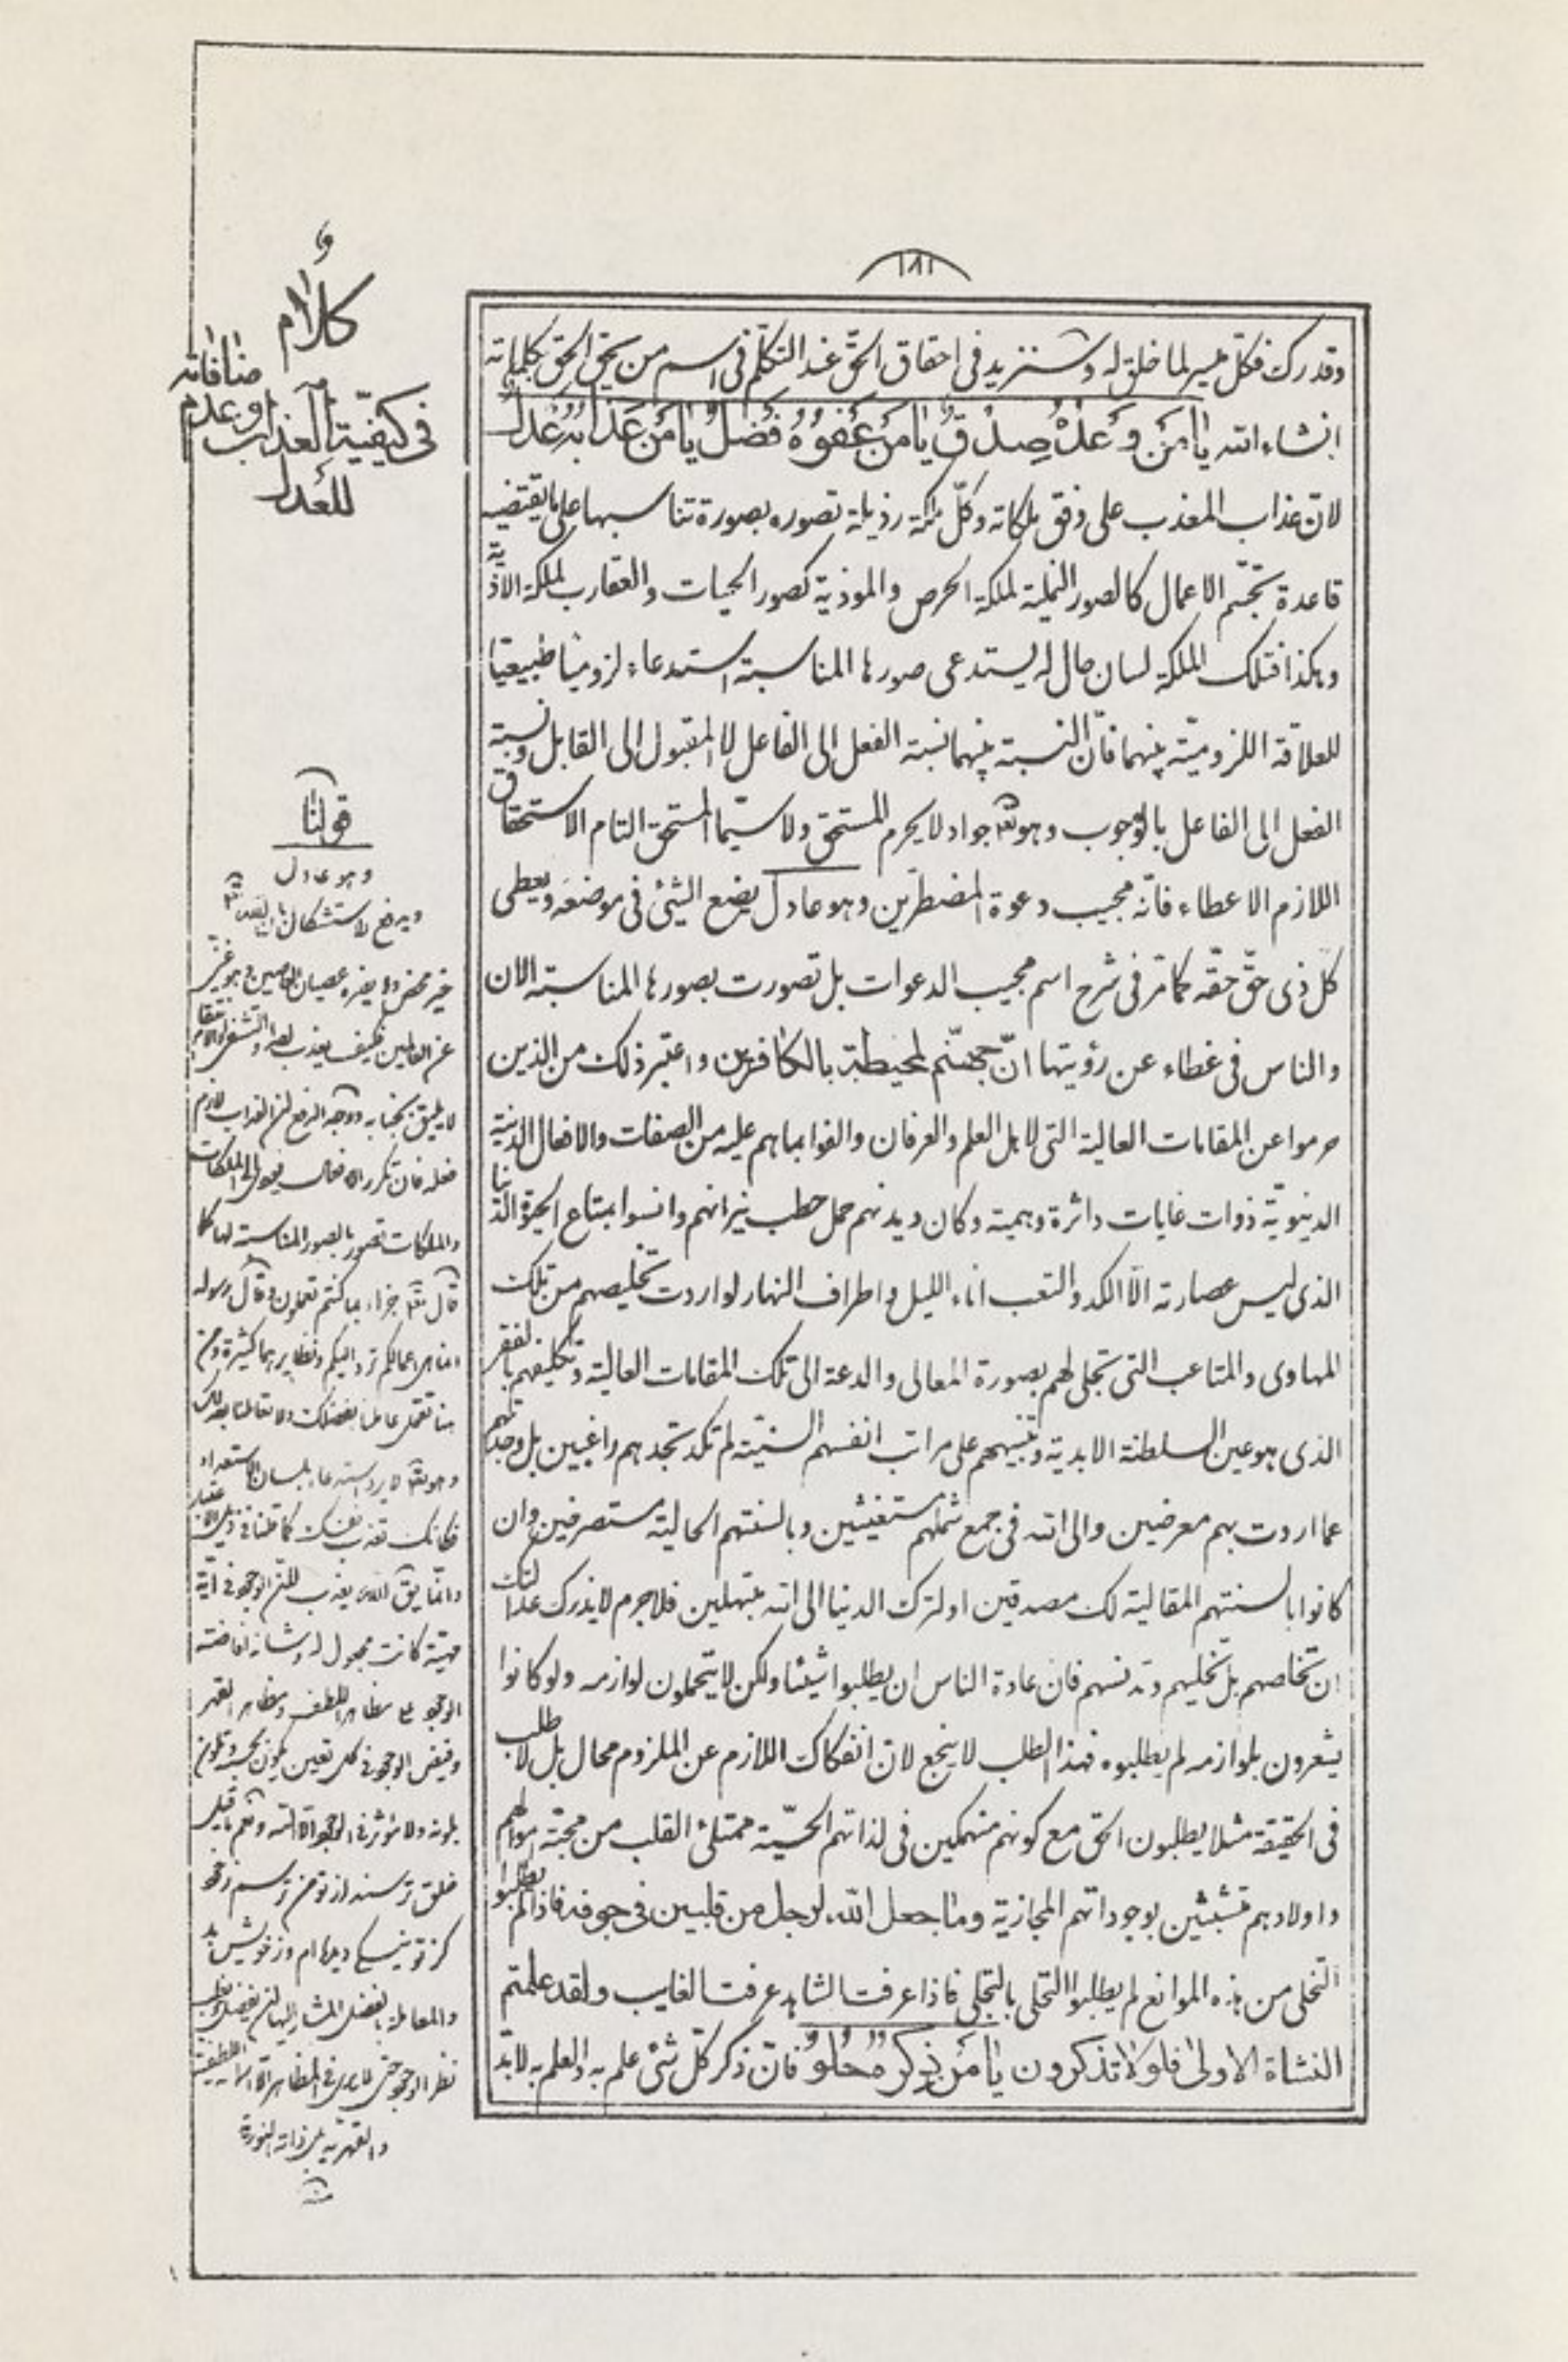 ١٨١
وقدرك فكل ميسر لما خلق له وسنزيد فى احقاق الحق عند التكلم فى اسم من يحق الحق بكلماته
انشاء الله يا من وعده صدق يا من عفوه فضل يا من عذابه عدل
لان عذاب المعذب على وفق ملكاته وكل ملكة رذيلة تصوره بصورة تناسبها على ما يقتضيه
قاعدة تجسم الاعمال كالصور النملية لملكة الحرص والموذية كصور الحيات والعقارب لملكة الاذية
وهكذا فتلك الملكة لسان حال له يستدعى صورها المناسبة استدعاء لزوميا طبيعيا
للعلاقة اللزومية بينهما فان النسبة بينهما نسبة الفعل الى الفاعل لا المقبول الى القابل ونسبة
الفعل الى الفاعل بالوجوب وهو تعالى جواد لا يحرم المستحق ولا سيما المستحق التام الاستحقاق
اللازم الاعطاء فانه مجيب دعوة المضطرين وهو عادل يضع الشئ فى موضعه ويعطى
كل ذى حق حقه كما مر فى شرح اسم مجيب الدعوات بل تصورت بصورها المناسبة الان
والناس فى غطاء عن رؤيتها ان جهنم لمحيطة بالكافرين واعتبر ذلك من الذين
حرموا عن المقامات العالية التى لاهل العلم والعرفان والفوا بما هم عليه من الصفات والافعال الدنية
الدنيوية ذوات غايات داثرة وهمية وكان ديدنهم حمل حطب نيرانهم وانسوا بمتاع الحيوة الدنيا
الذى ليس عصارته الا الكد والتعب اناء الليل واطراف النهار لو اردت تخليصهم من تلك
المهاوى والمتاعب التى تجلى لهم بصورة المعالى والدعة الى تلك المقامات العالية وتكليفهم بالفقر
الذى هو عين السلطنة الابدية وتنبيههم على مراتب انفسهم السنية لم تكد تجدهم راغبين بل وجدتهم
عما اردت بهم معرضين والى الله فى جمع شملهم مستغيثين وبالسنتهم الحالية مستصرفين وان
كانوا بالسنتهم المقالية لك مصدقين او لترك الدنيا الى الله مبتهلين فلا جرم لا يذرك عدالتك
ان تخاصهم بل تخليهم وتدنسهم فان عادة الناس ان يطلبوا شيئا ولكن لا يتحملون لوازمه ولو كانوا
يشعرون بلوازمه لم يطلبوه فهذا الطلب لا ينجع لان انفكاك اللازم عن الملزوم محال بل لا طلب
فى الحقيقة مثلا يطلبون الحق مع كونهم منهمكين فى لذاتهم الحسية ممتلئ القلب من محبة اموالهم
واولادهم متشبثين بوجوداتهم المجازية وما جعل الله لرجل من قلبين فى جوفه فاذا لم يطلبوا
التخلى من هذه الموانع لم يطلبوا التحلى بالتجلى فاذا عرفت الشاهد عرفت الغايب ولقد علمتم
النشاة الاولى فلولا تذكرون يا من ذكره حلو فان ذكر كل شئ علم به والعلم به لا بد
و
كلام
فى كيفية العذاب وعدم
منافاته
للعدل
قولنا
وهو عادل
خير محض ولا يضره عصيان العاصين وهو غنى
عن العالمين فكيف يعذب
فعله فان تكرر الافاعيل
والملكات تصور بالصور المناسبة لها كما
قال تعالى جزاء بما كنتم تعملون وقال رسوله
انما هى اعمالكم ترد اليكم ونظايرهما كثيرة
وفيض الوجود فى كل تعين
خلق ترسند از تو من ترسم ز خود
كز تو نيكى ديده ام وز خويش بد
والقهرية
منه